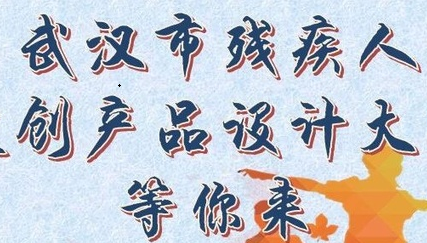 武汉市残疾人
创产品设计大
等你来